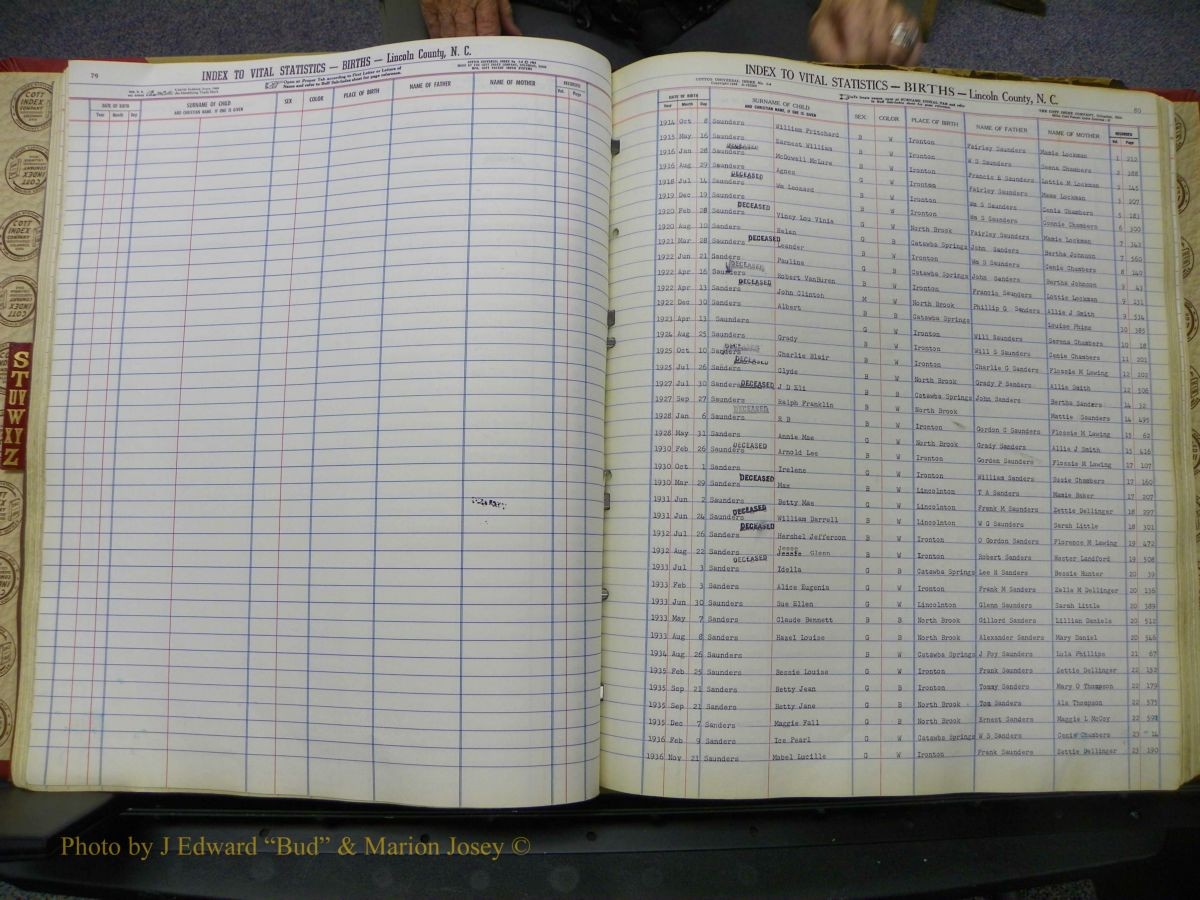 79
INDEX TO VITAL STATISTICS — BIRTHS — Lincoln County, N. C.
DATE OF BIRTH
Year Month Day
SURNAME OF CHILD
AND CHRISTIAN NAME, IF ONE IS GIVEN
SEX
COLOR
PLACE OF BIRTH
NAME OF FATHER
NAME OF MOTHER
RECORDED
Vol. Page
COTT INDEX COMPANY
S
T
UV
W
XY
Z
INDEX TO VITAL STATISTICS — BIRTHS — Lincoln County, N. C.
80
THE COTT INDEX COMPANY, Columbus, Ohio
DATE OF BIRTH
Year Month Day
SURNAME OF CHILD
AND CHRISTIAN NAME, IF ONE IS GIVEN
SEX
COLOR
PLACE OF BIRTH
NAME OF FATHER
NAME OF MOTHER
RECORDED
Vol. Page
1914 Oct 8 Saunders William Pritchard B W Ironton Fairley Saunders Mamie Lockman 1 212
1915 May 16 Saunders Earnest William B W Ironton W S Saunders Chambers 2 188
1916 Jan 28 Saunders McDowell McLure B W Ironton Francis E Saunders Lottie M Lockman 3 145
1916 Aug 29 Saunders DECEASED Agnes G W Ironton Fairley Saunders Mame Lockman 3 207
1918 Jul 14 Saunders Wm Leonard B W Ironton Wm S Saunders Cenie Chambers 5 181
1919 Dec 19 Saunders DECEASED W Ironton Wm S Saunders Connie Chambers 6 300
1920 Feb 28 Saunders Viney Lou Vinia G W North Brook Fairley Saunders Mamie Lockman 7 342
1920 Aug 10 Sanders Helen G B Catawba Springs John Sanders Bertha Johnson 7 560
1921 Mar 28 Saunders DECEASED Leander B W Ironton Wm S Saunders Cenie Chambers 8 140
1922 Jun 21 Sanders Pauline G B Catawba Springs John Sanders Bertha Johnson 9 43
1922 Apr 16 Saunders DECEASED Robert VanBuren B W Ironton Francis Saunders Lottie Lockman 9 131
1922 Apr 13 Sanders John Clinton M W North Brook Phillip G Sanders Allie J Smith 9 534
1922 Dec 30 Sanders Albert B B Catawba Springs Louise Phine 10 385
1923 Apr 13 Saunders G W Ironton Will Saunders Serena Chambers 10 18
1924 Aug 25 Saunders Grady B W Ironton Will S Saunders Cenie Chambers 11 201
1925 Oct 10 Sanders DECEASED Charlie Blair B W Ironton Charlie G Sanders Flossie M Lawing 12 102
1925 Jul 26 Sanders Clyde B W North Brook Grady P Sanders Allie Smith 12 506
1927 Jul 30 Sanders DECEASED J D Eli B B Catawba Springs John Sanders Bertha Sanders 14 32
1927 Sep 27 Saunders Ralph Franklin B W North Brook Mattie Saunders 14 495
1928 Jan 6 Saunders R B B W Ironton Gordon C Saunders Flossie M Lawing 15 62
1928 May 31 Sanders Annie Mae G W North Brook Grady Sanders Allie J Smith 15 416
1930 Feb 26 Saunders DECEASED Arnold Lee B W Ironton Gordon Saunders Flossie M Lawing 17 107
1930 Oct 1 Sanders Irelene G W Ironton William Sanders Susie Chambers 17 160
1930 Mar 29 Sanders DECEASED Mae B W Lincolnton T A Sanders Mamie Baker 17 207
1931 Jun 2 Saunders Betty Mae G W Lincolnton Frank M Saunders Zettie Dellinger 18 297
1931 Jun 24 Saunders DECEASED William Darrell B W Lincolnton W G Saunders Sarah Little 18 301
1932 Jul 26 Saunders DECEASED Hershel Jefferson B W Ironton O Gordon Sanders Florence M Lawing 19 472
1932 Aug 22 Saunders Jesse Glenn B W Ironton Robert Sanders Hester Landford 19 508
1933 Jul 3 Sanders DECEASED Idella G B Catawba Springs Lee H Sanders Bessie Hunter 20 39
1933 Feb 3 Sanders Alice Eugenia G W Ironton Frank M Sanders Zelle M Dellinger 20 136
1933 Jun 30 Saunders Sue Ellen G W Lincolnton Glenn Saunders Sarah Little 20 389
1933 May 7 Sanders Claude Bennett B B North Brook Gillord Sanders Lillian Daniels 20 512
1933 Aug 8 Sanders Hazel Louise G B North Brook Alexander Sanders Mary Daniel 20 546
1934 Aug 26 Saunders B W Catawba Springs J Foy Saunders Lula Phillips 21 67
1935 Feb 25 Saunders Bessie Louise G W Ironton Frank Saunders Zettie Dellinger 22 152
1935 Sep 21 Sanders Betty Jean G B Ironton Tommy Sanders Mary O Thompson 22 179
1935 Sep 21 Sanders Betty Jane G B North Brook Tom Sanders Ala Thompson 22 575
1935 Dec 7 Sanders Maggie Fall G B North Brook Ernest Sanders Maggie L McCoy 22 591
1936 Feb 9 Sanders Ice Pearl G W Catawba Springs W S Sanders Cenie Chambers 23 14
1936 Nov 21 Saunders Mabel Lucille G W Ironton Frank Saunders Zettie Dellinger 23 190
Photo by J Edward “Bud” & Marion Josey ©